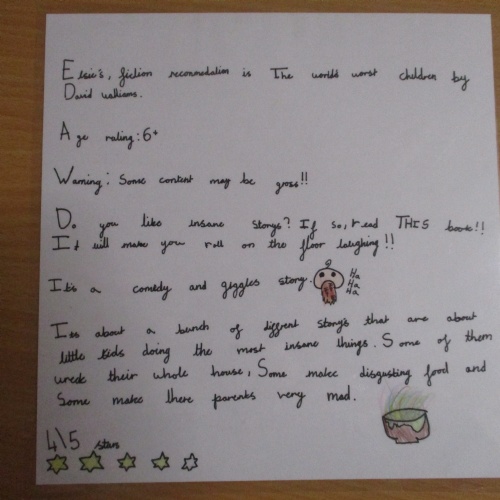 Elsie's, fiction recommodation is The worlds worst children by
David walliams.
Age rating: 6+
Warning: Some content may be gross!!
Do you like insane storys? If so, read THIS book!!
It will make you roll on the floor laughing!!
It's a comedy and giggles story.
Ha
Ha
Ha
Its about a bunch of diffrent story's that are about
little kids doing the most insane things. Some of them
wreck their whole house, Some make disgusting food and
Some make there parents very mad.
4\5 stars